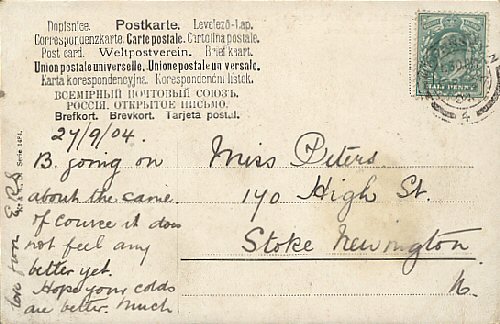 Dopisnice Postkarte. Levelező-Lap.
Correspondenzkarte. Carte postale. Cartolina postale.
Post card. Weltpostverein. Brief kaart.
Union postale universelle. Unione postale universale.
Karta korespondencyjna. Korespondenční lístek.
ВСЕМІРНЫЙ ПОЧТОВЫЙ СОЮЗЪ.
РОССІЯ. ОТКРЫТОЕ ПИСЬМО.
Brefkort. Brevkort. Tarjeta postal.
HALF PENNY
27/9/04.
B. going on
about the same
of course it does
not feel any
better yet.
Hope your colds
are better. Much
love from E.R.S
Serie 1491.
Miss Peters
190 High St.
Stoke Newington
N.